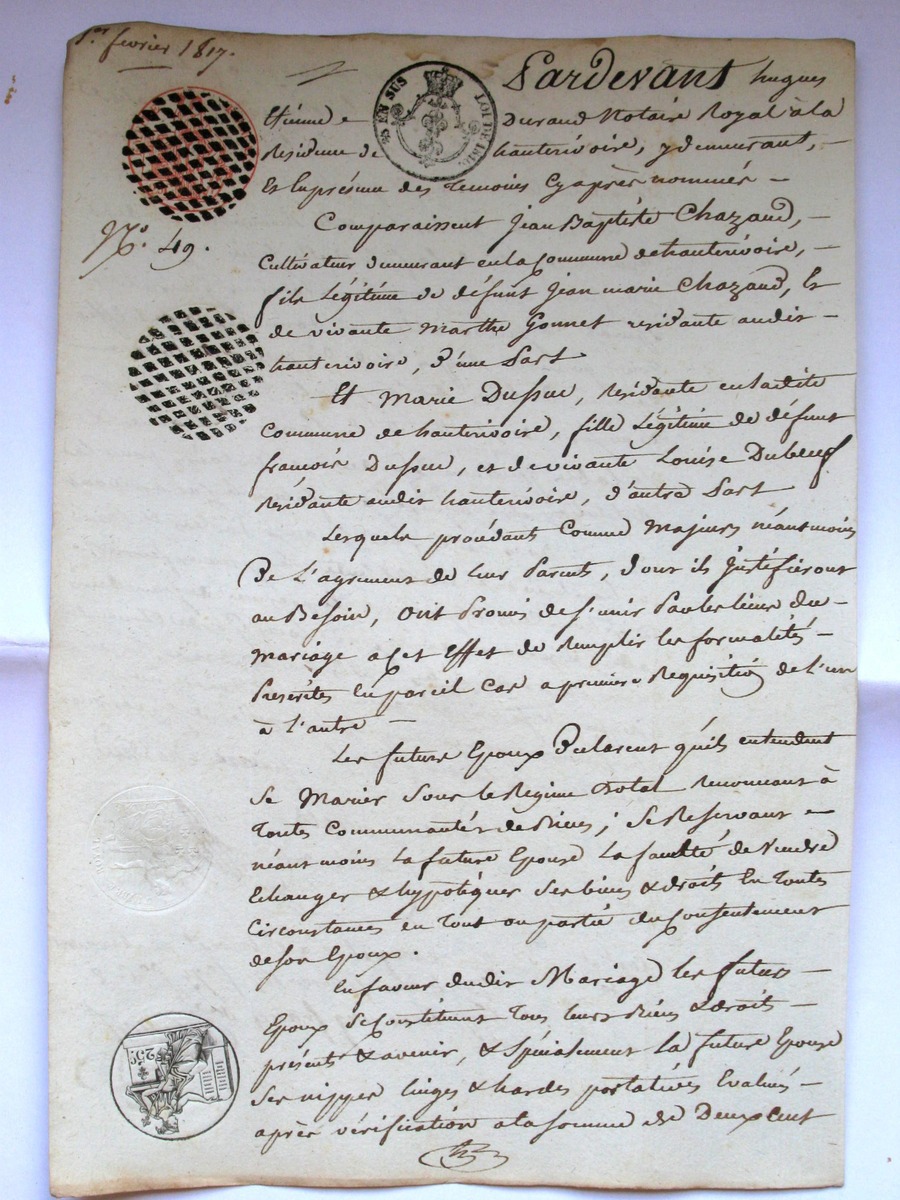 1.er fevrier 1817.
Pardevant hugues
EN SUS
LOI DE 1816
Etienne Durand Notaire Royal à la
Residence de hauterivoire, y demeurant,
Et En présence des Temoins Cy après nommés
N.o 49.
Comparaissent Jean Baptiste Chazaud,
Cultivateur demeurant en la Commune de hauterivoire,
fils Légitime de défunt Jean marie Chazaud, Et
de vivante Marthe Gonnet residante audit
hauterivoire, D'une Part
Et Marie Dussuc, Residante en ladite
Commune de hauterivoire, fille Légitime de défunt
françois Dussuc, et de vivante Louise Dubeuf
residante audit hauterivoire, d'autre Part
Lesquels procédant Comme Majeurs néantmoins
De L'agrement de leur Parents, dont ils Justifieront
au Besoin, ont Promis de s'unir Par les liens du
Mariage a Cet Effet de Remplir les formalités
Prescrites En pareil Cas a premiere Requisition de L'un
à L'autre
Les futurs Epoux Déclarent qu'ils entendent
Se Marier Sous le Régime Dotal Renoncant à
Toutes Communautés de Biens ; Se Reservant
néantmoins La future Epouse La faculté de Vendre
Echanger & hypotéquer Ses biens & droits En Toutes
Circonstances en Tout ou partie du Consentement
de son Epoux.
En faveur dudit Mariage les futurs
Epoux Se Constituent Tous leurs Biens & droits
présents & avenir, & Spécialement La future Epouse
Ses nippes linges & hardes portatives Evalués
après vérification a la somme de Deux Cent
25